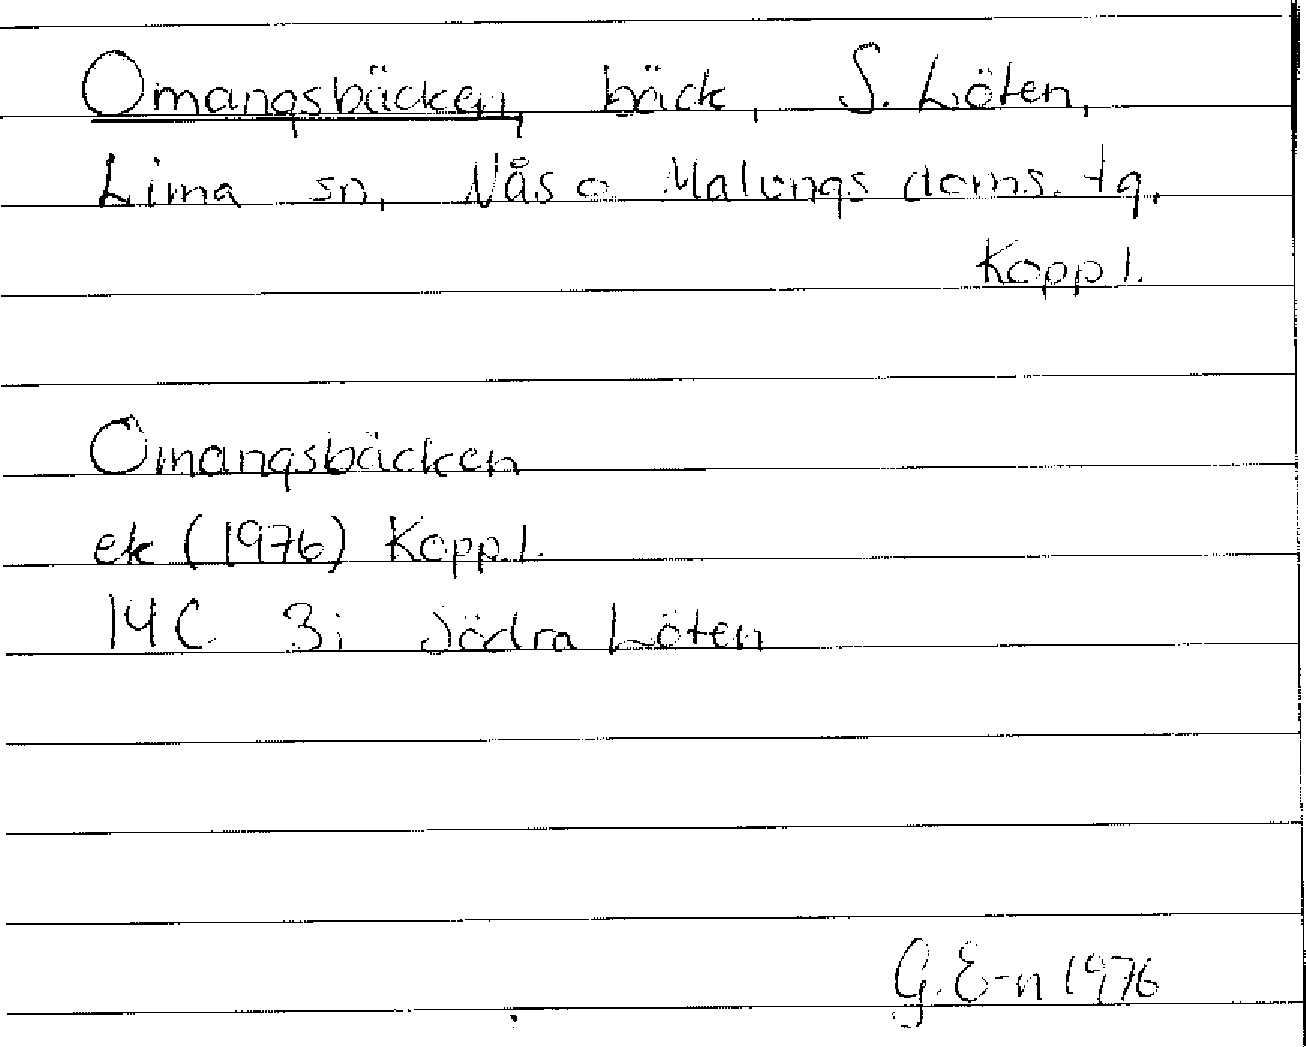 Omangsbäcken, bäck, S. Löten,
Lima sn, Nås o Malungs doms. tg,
Kopp l.
Omangsbäcken
ek (1976) Kopp. l.
14 C 3i Södra Löten
G. E-n 1976